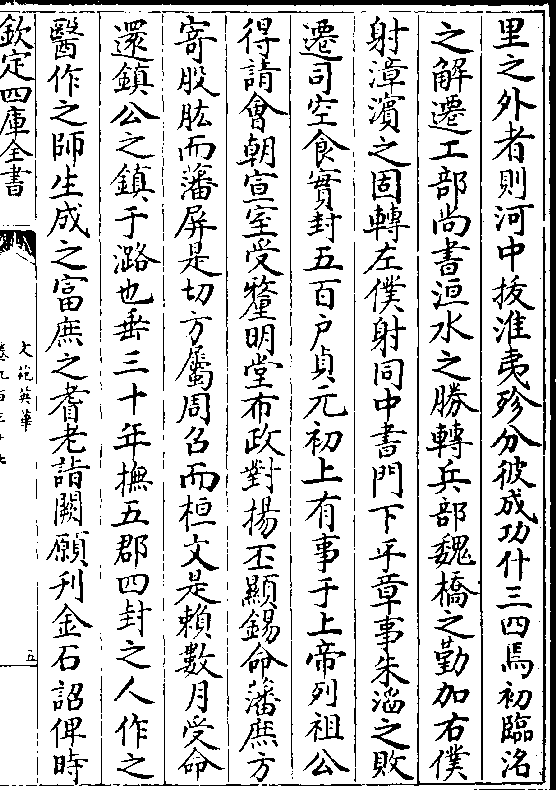 里之外者則河中拔淮夷殄分彼成功什三四焉初臨洺
之解遷工部尚書洹水之勝轉兵部魏橋之勤加右僕
射漳濱之固轉左僕射同中書門下平章事朱滔之敗
遷司空食實封五百户貞元初上有事于上帝列祖公
得請㑹朝宣室受釐明堂布政對揚丕顯錫命藩庶方
寄股肱而藩屏是切方屬周召而桓文是賴數月受命
還鎮公之鎮于潞也垂三十年撫五郡四封之人作之
醫作之師生成之富庶之耆老詣闕願刋金石詔俾時
欽定四庫全書
文苑英華
五